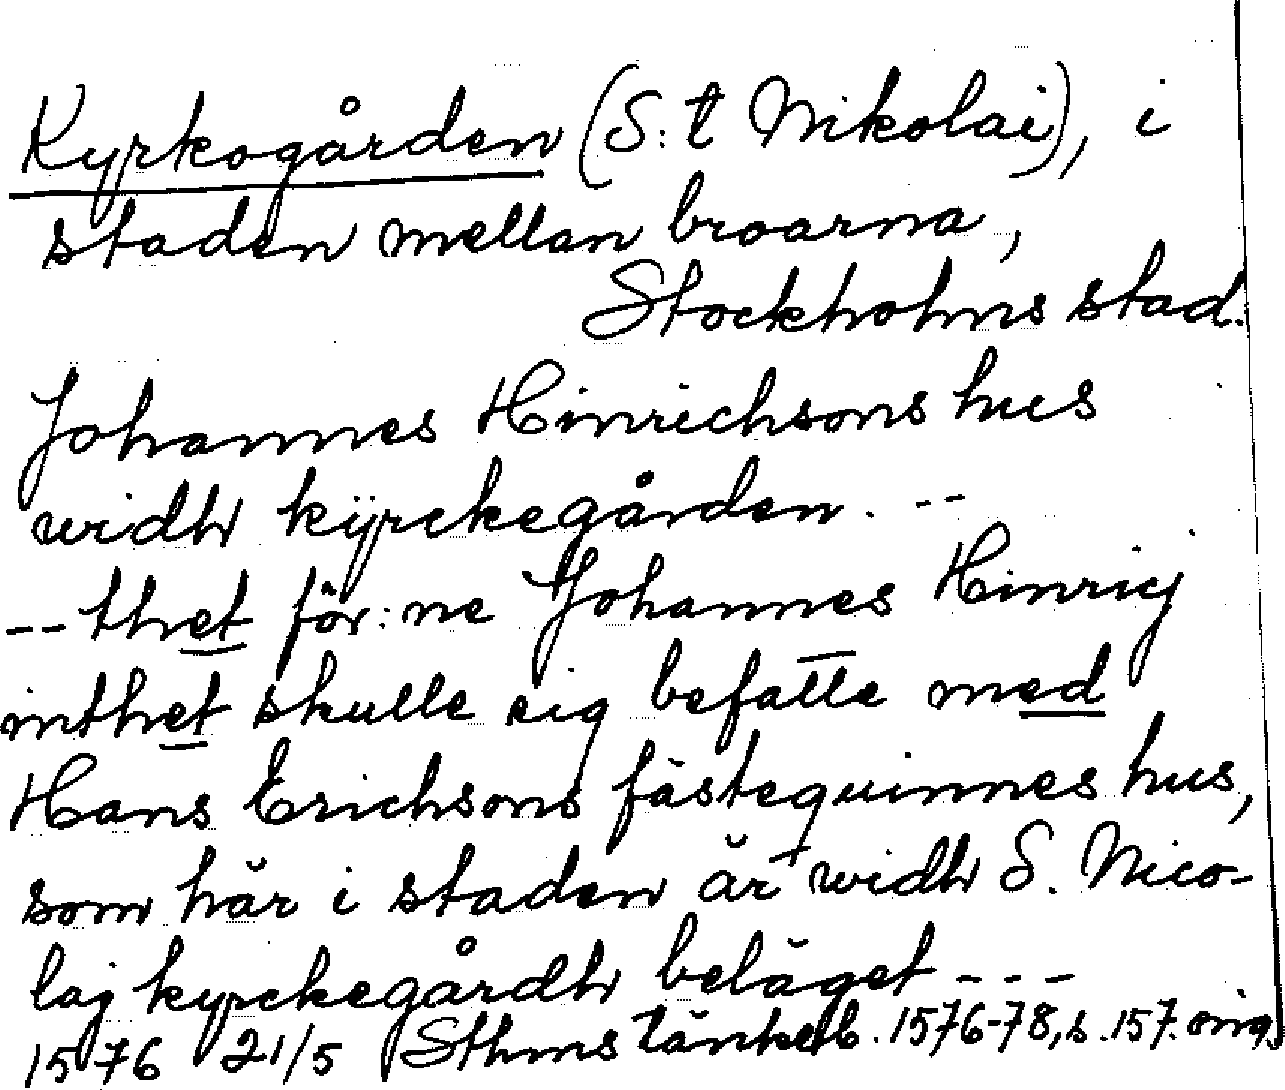 Kyrkogården (S:t Nikolai), i
staden mellan broarna,
Stockholms stad.
Johannes Hinrichsons hus
widh kÿrckegården. --
-- thet för:ne Johannes Hinricj
inthet skulle sig befatte med
Hans Erichsons fästequinnes hus,
som här i staden är widh S. Nico-
laj kyrckegårdh beläget ---
1576 21/5 Sthms tänkeb. 1576-78, s. 157. orig.